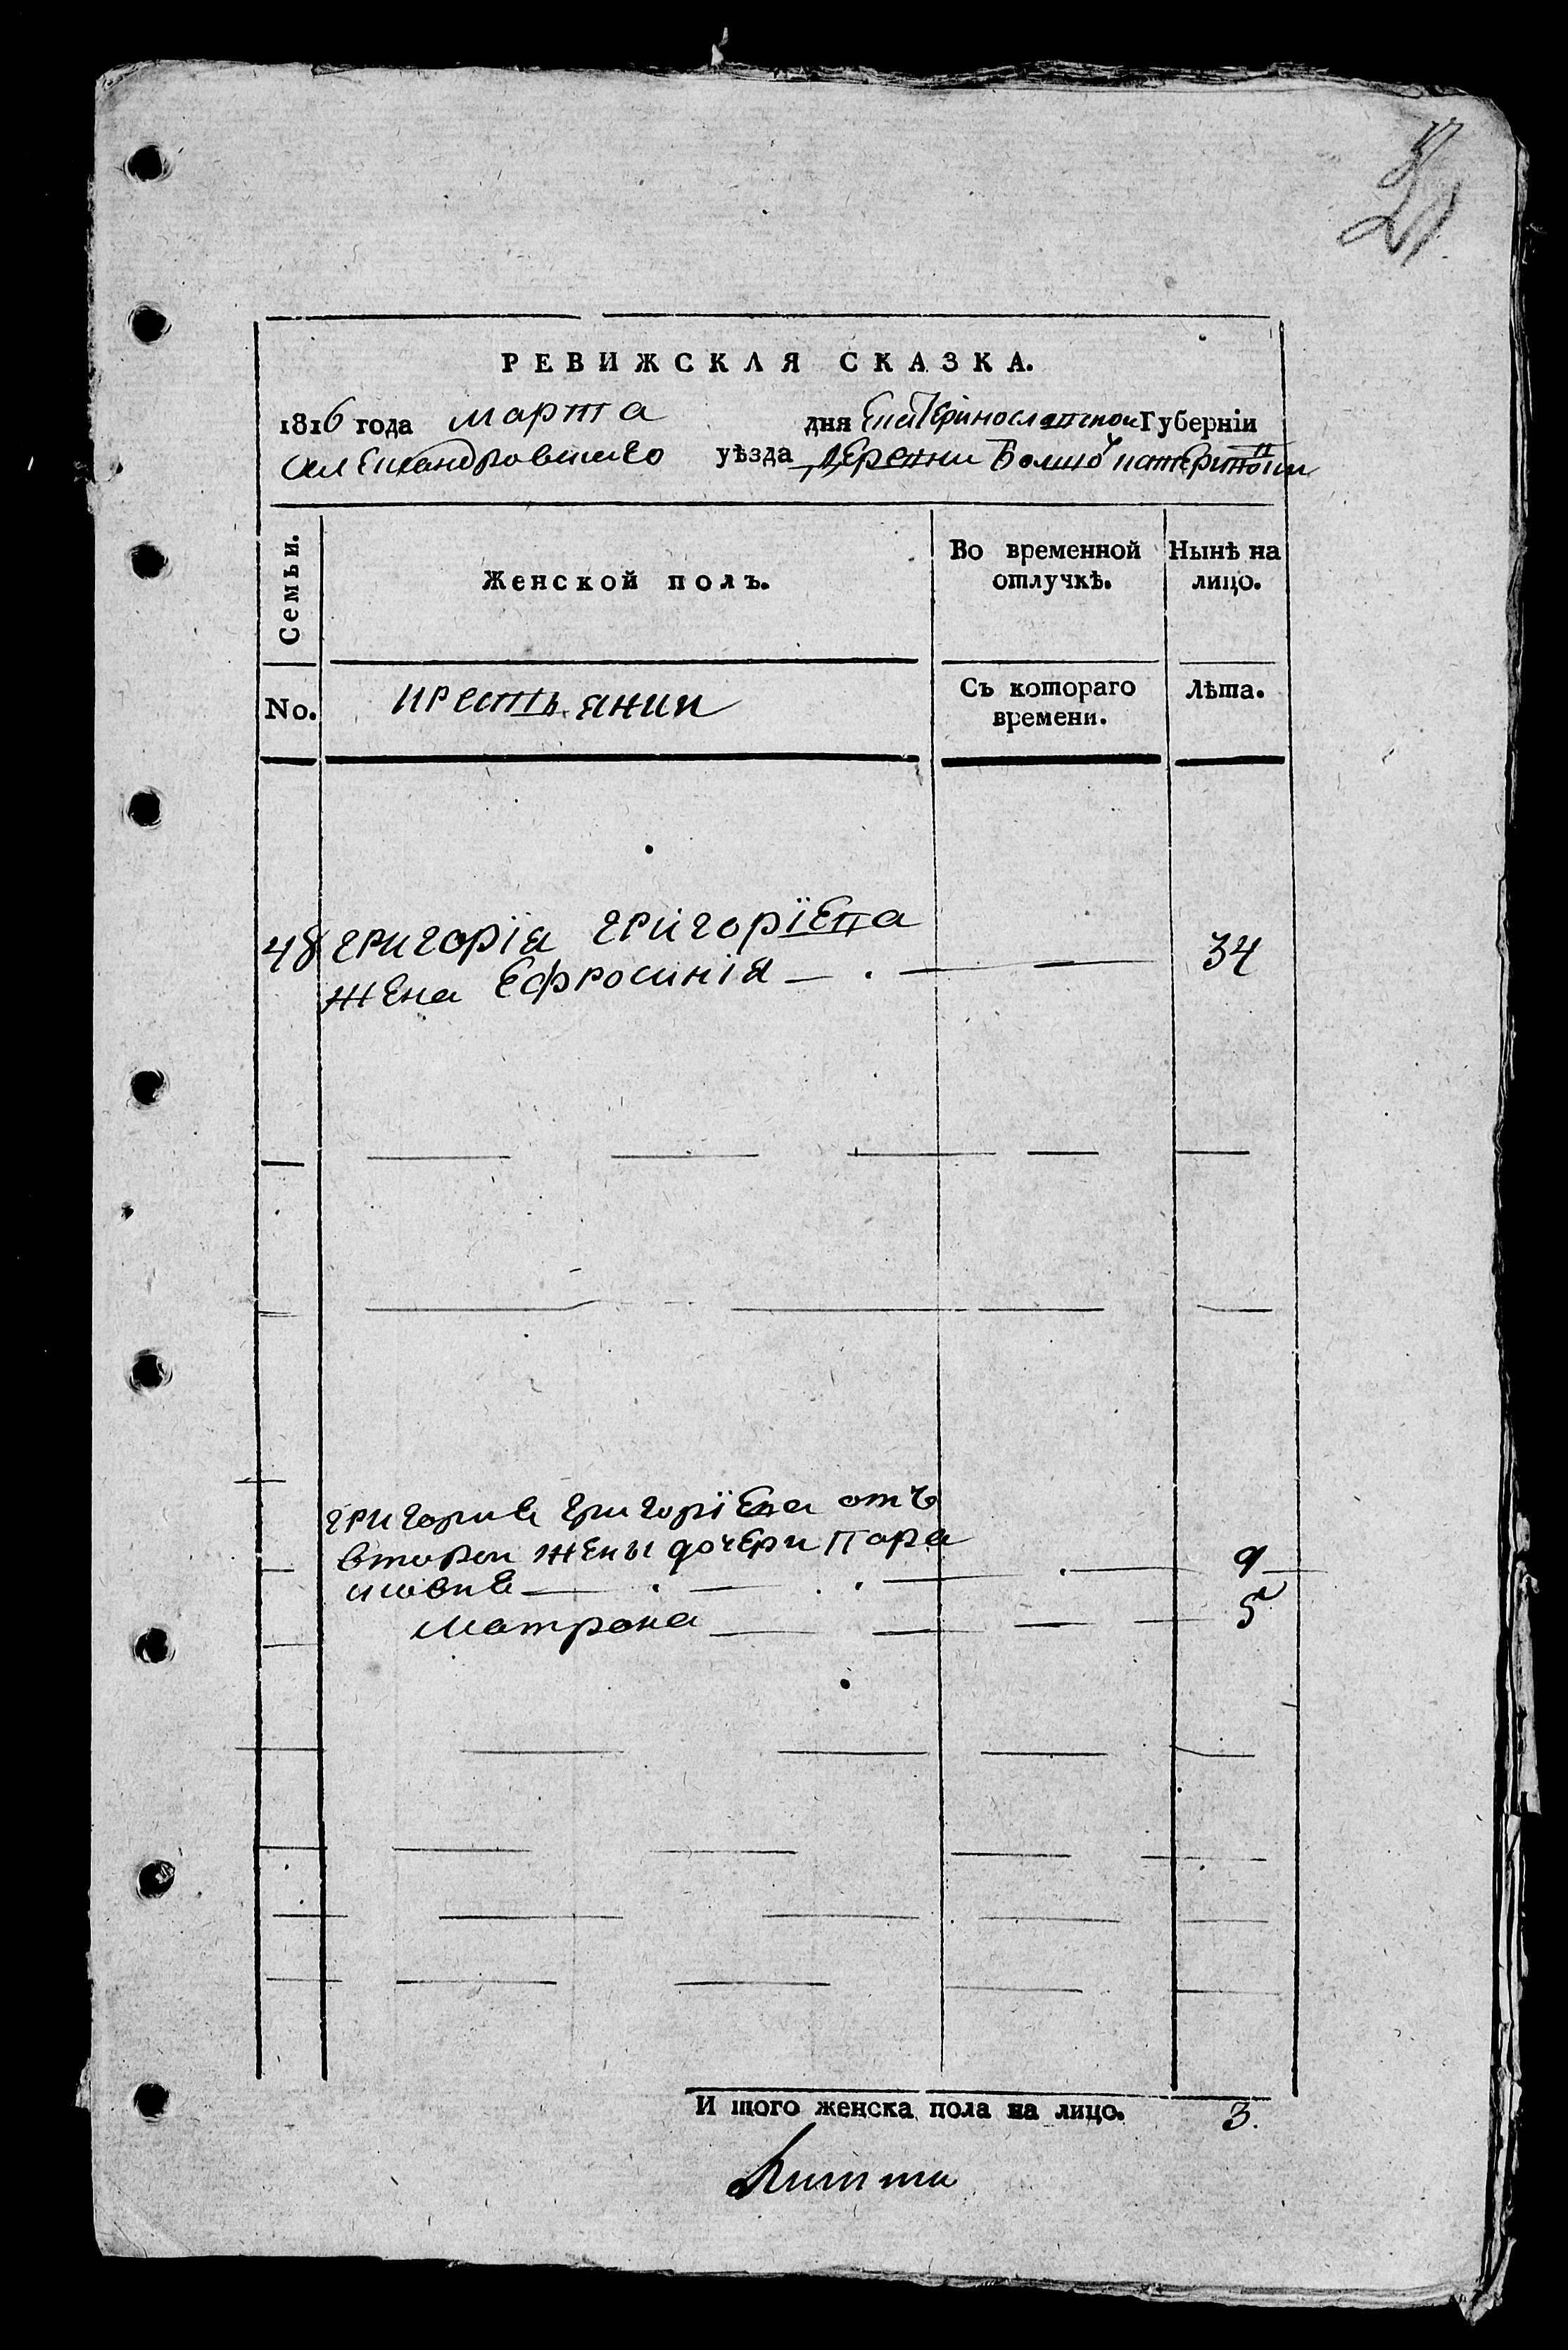 РЕВИЖСКАЯ СКАЗКА.
1816 года марта дня Екатеринославской Губерніи
Александровскаго уѣзда деревни
Семьи. Женской полъ. Во временной отлучкѣ. Нынѣ на лицо.
No. крестьянки Съ котораго времени. Лѣта.
48 григорія григоріева
жена Ефросинія 34
григория григоріева отъ
второй жены дочери Пара
сковия 9
матрона 5
И того женска пола на лицо. 3.